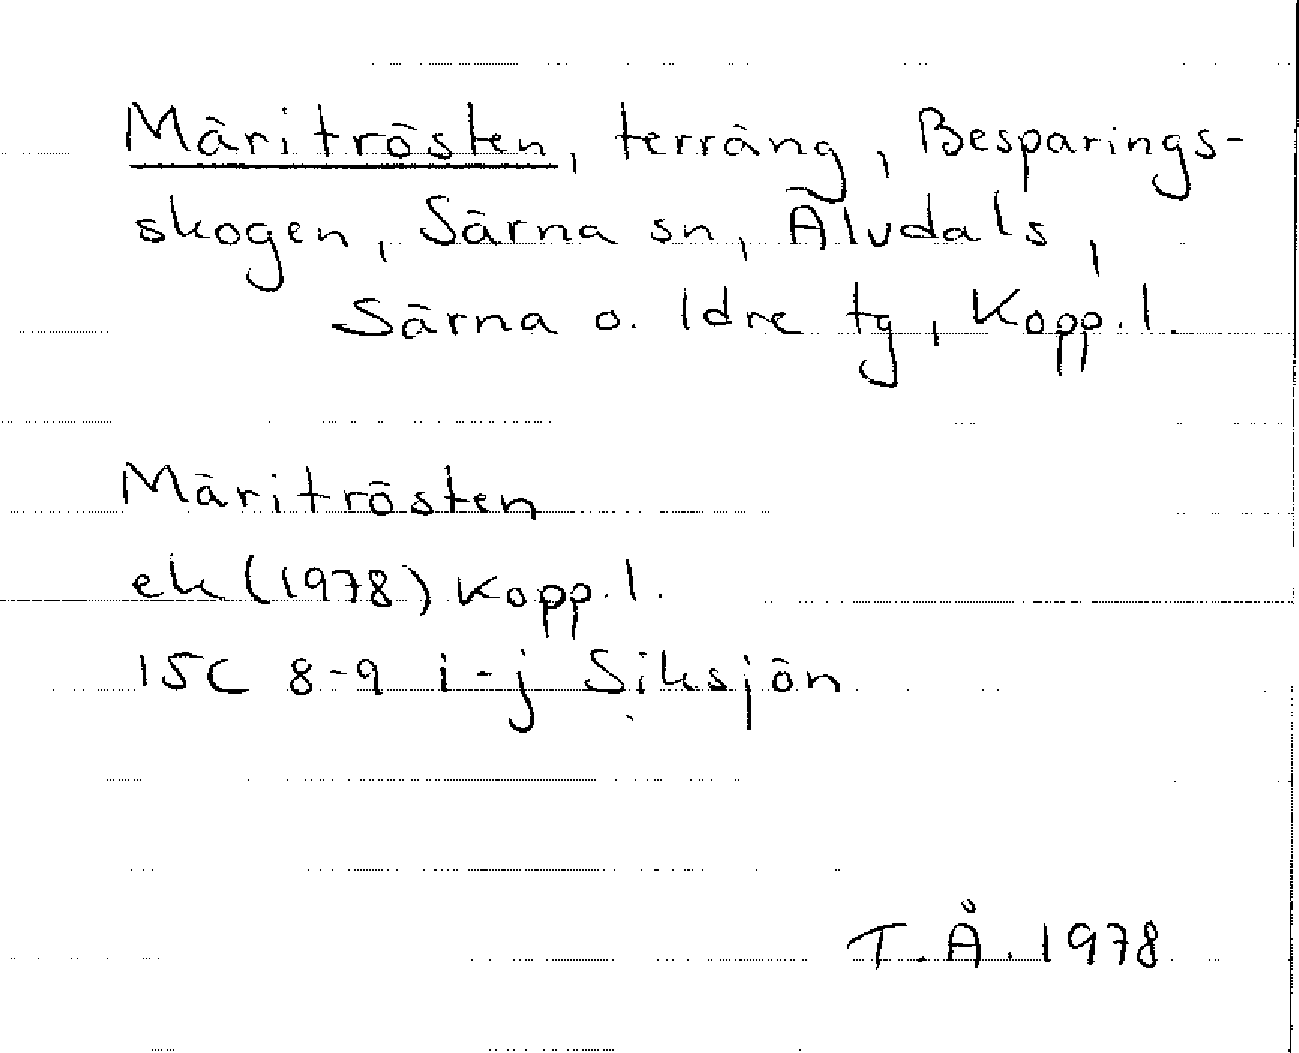 Märitrösten, terräng, Besparings-
skogen, Särna sn, Älvdals,
Särna o. Idre tg, Kopp. l.
Märitrösten
ek (1978) Kopp. l.
15C 8-9 i-j Siksjön
T.Å. 1978